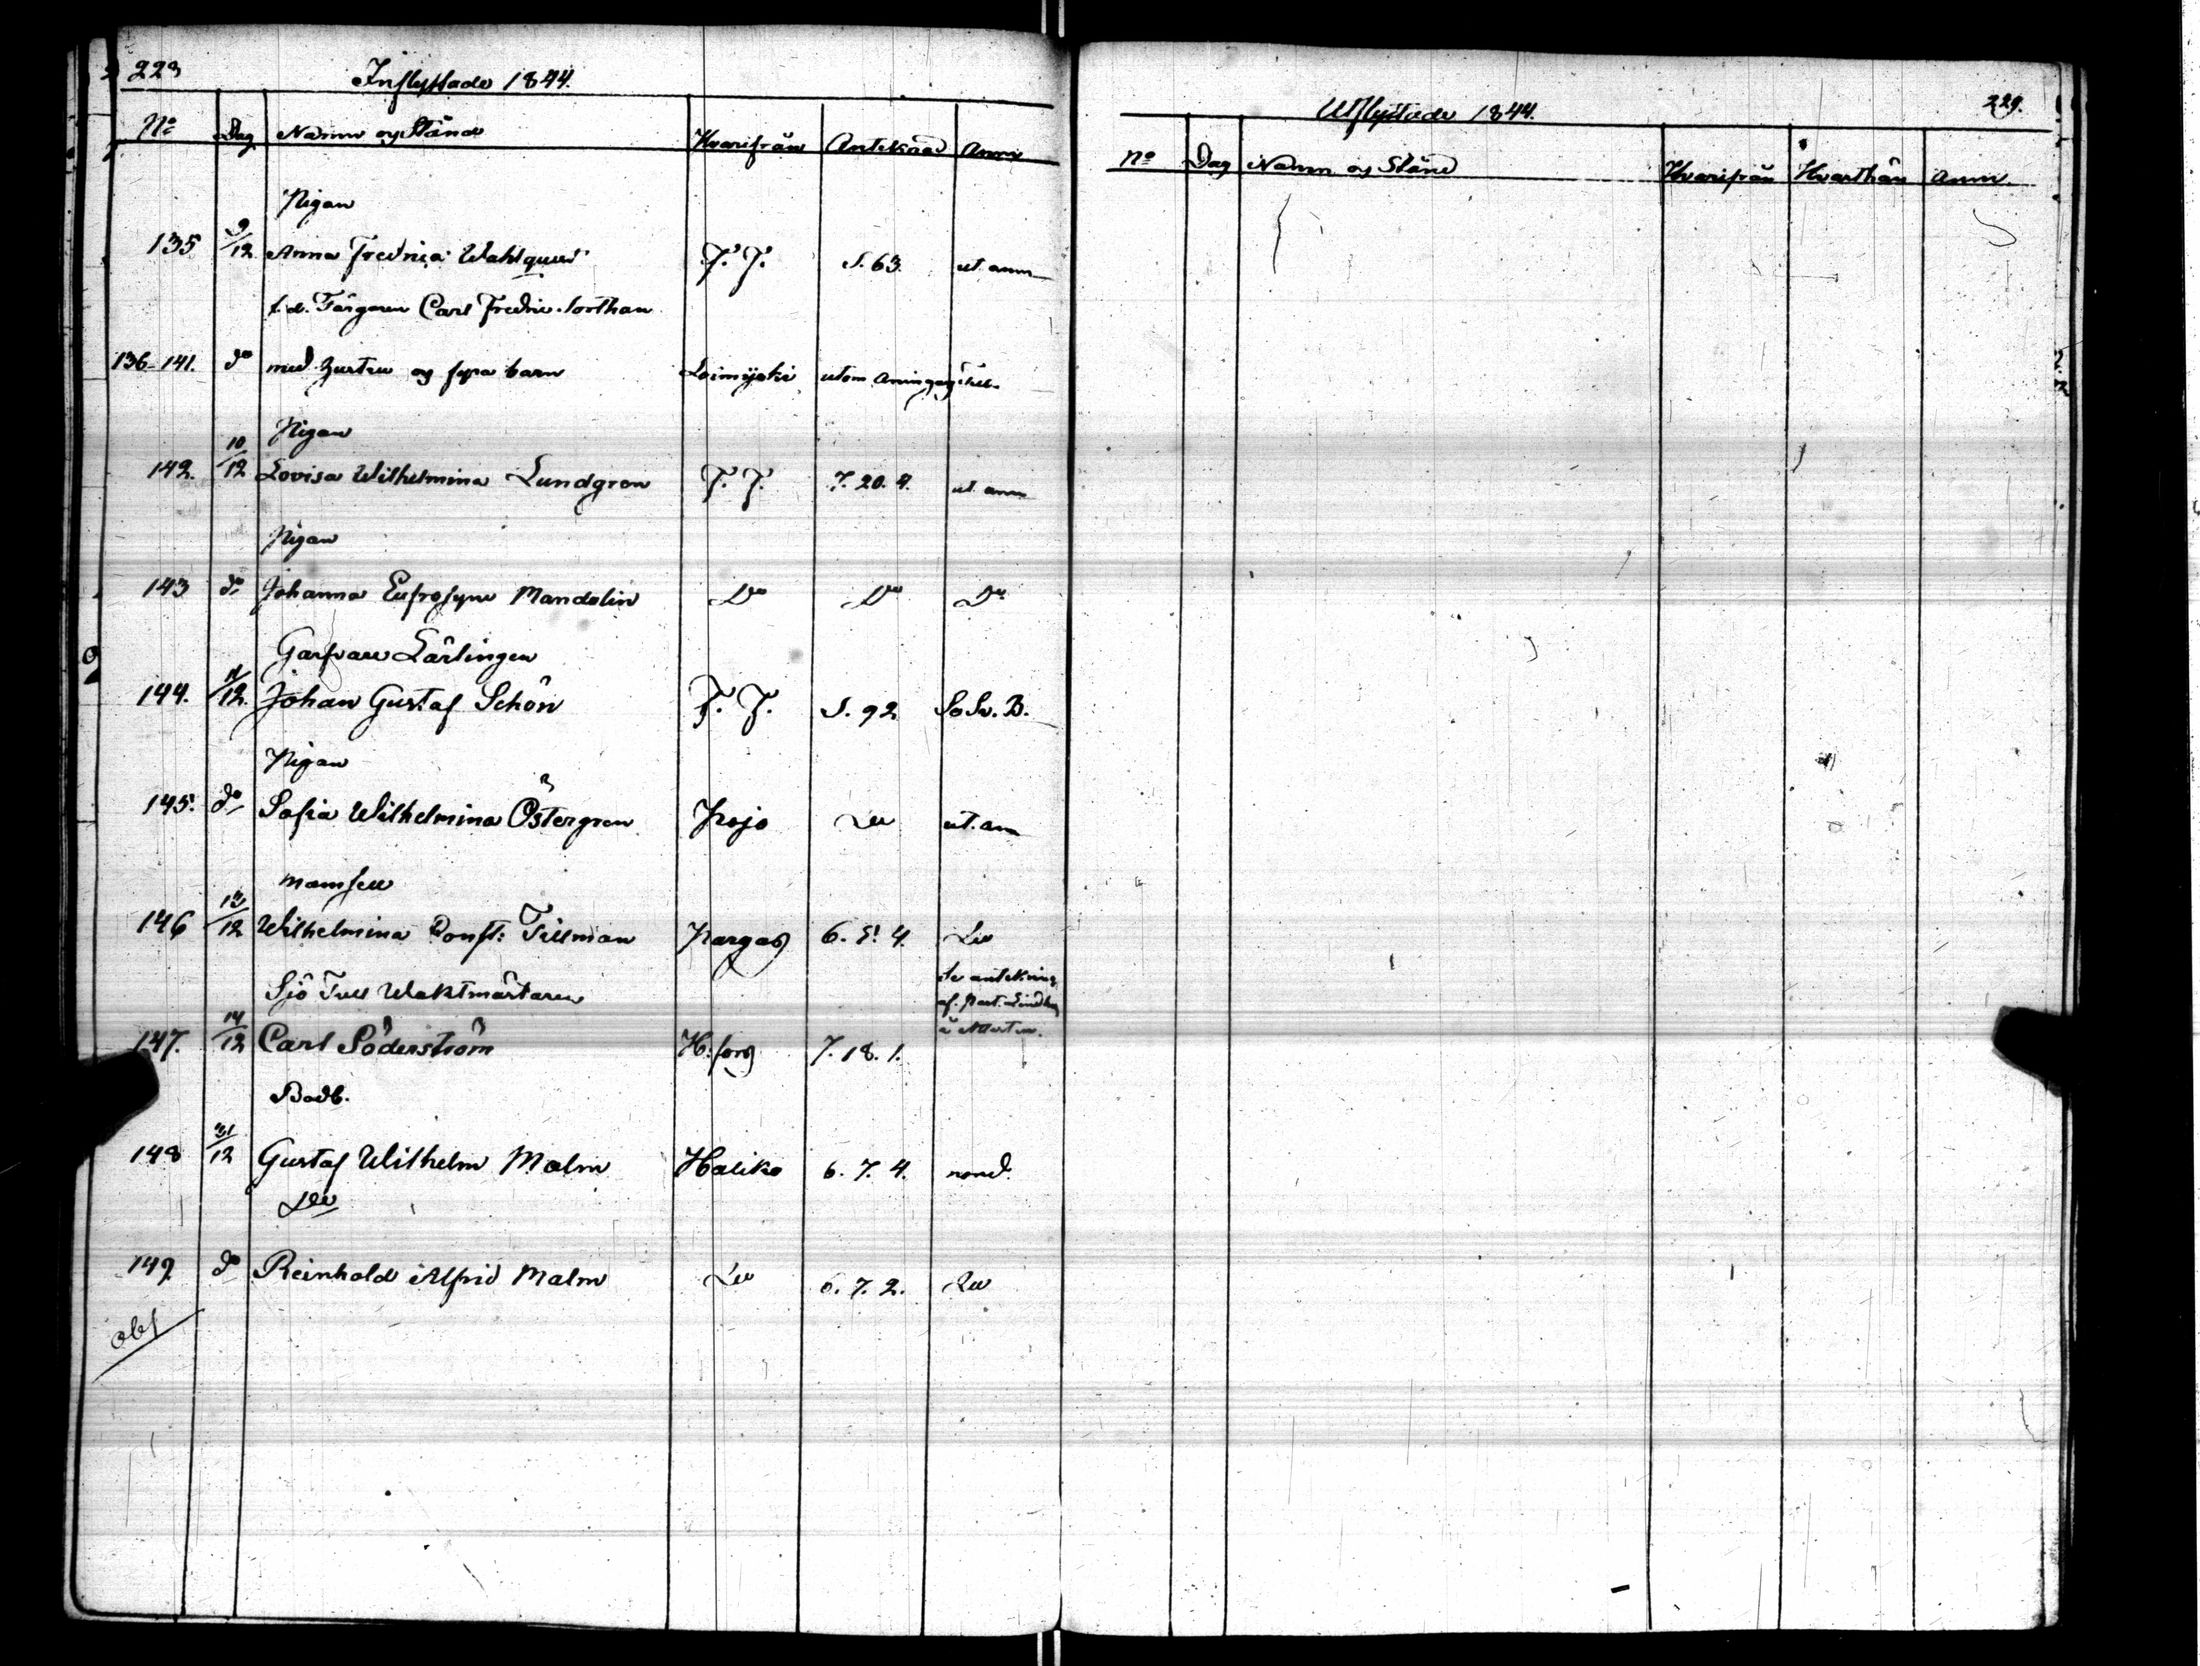 223
Inflyttade 1844.
No Dag Namn og Stånd Hvarifrån Anteknad Anm
Pigan
135 9/12 Anna Fredrica Wahlquist F. F. S. 63. ut. anm
f. d. Färgaren Carl Fredric
136-141. do med hustru og fyra barn Loimijoki utom
Pigan
142. 10/12 Lovisa Wilhelmina Lundgren F. F. 7. 20. 4. ut anm
Pigan
143 do Johanna Eufrosyne Mandelin Do Do Do
Garfvare Lärlingen
144. 11/12. Johan Gustaf Schön F. F. S. 92 B.
Pigan
145. do Sofia Wilhelmina Östergren Pojo Do ut. an
Mamsell
146 13/12 Wilhelmina Const: Tillman Pargas 6. 5. 4. Do
Sjö Tull Waktmästaren
Se antekning
af. Past. Lindberg
147. 14/12 Carl Söderström H:fors 7. 18. 1.
Bodb.
148 31/12 Gustaf Wilhelm Malm Haliko 6. 7. 4. nond.
Do
149 do Reinhold Alfrid Malm Do 6. 7. 2. Do
obs
Utflyttade 1844.
229.
No Dag Namn og Stånd Hvarifrån Hvarthän Anm.